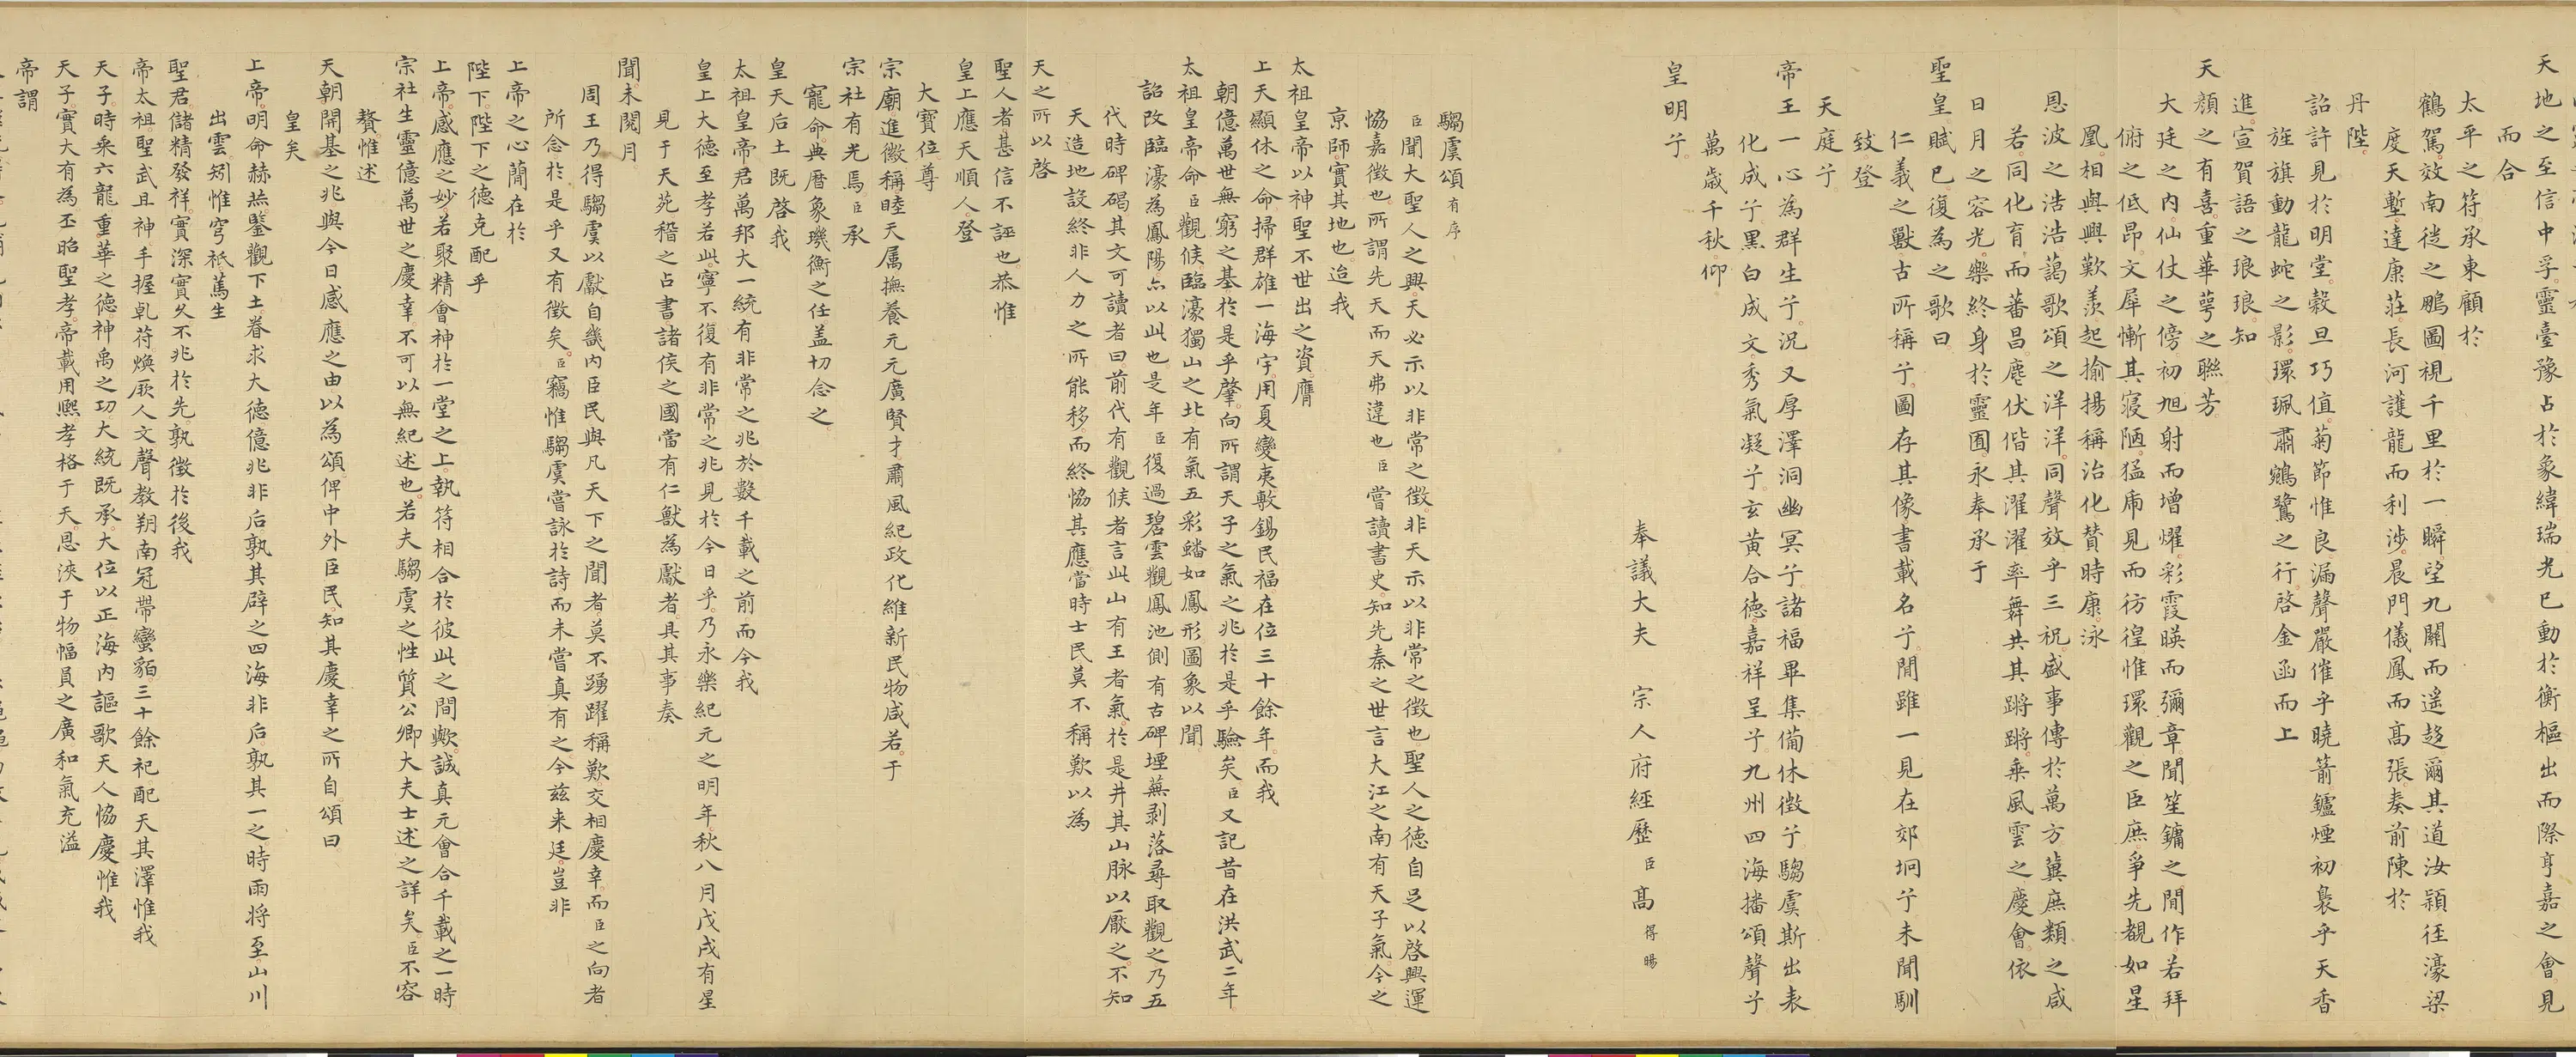 天地之至信中孚靈臺豫占於象緯瑞光已動於衡樞出而際亨嘉之會見
而合
太平之符承東顧於
鶴駕效南徙之鵬圖視千里於一瞬望九關而遥趍爾其道汝潁徑濠梁
度天塹達康莊長河護龍而利涉晨門儀鳳而高張奏前陳於
丹陛
詔許見於明堂穀旦巧值菊節惟良漏聲嚴催乎曉箭鑪煙初裊乎天香
旌旗動龍蛇之影環珮肅鵷鷺之行啓金函而上
進宣賀語之琅琅知
天顔之有喜重華萼之聯芳
大廷之内仙仗之傍初旭射而增燿彩霞暎而彌章聞笙鏞之閒作若拜
俯之低昂文犀慚其寢陋猛乕見而彷徨惟環觀之臣庶爭先覩如星
凰相與興歎羨起揄揚稱治化賛時康泳
恩波之浩浩藹歌頌之洋洋同聲效乎三祝盛事傳於萬方冀庶類之咸
若同化育而蕃昌麀伏偕其濯濯率舞共其蹡蹡乘風雲之慶會依
日月之容光樂終身於靈囿永奉承于
聖皇賦已復為之歌曰
仁義之獸古所稱兮圖存其像書載名兮閒雖一見在郊坰兮未聞馴
致登
天庭兮
帝王一心為群生兮況又厚澤洞幽冥兮諸福畢集備休徴兮騶虞斯出表
化成兮黒白成文秀氣凝兮玄黄合德嘉祥呈兮九州四海播頌聲兮
萬歳千秋仰
皇明兮
奉議大夫 宗人府經歷臣高得暘
騶虞頌有序
臣聞大聖人之興天必示以非常之徴非天示以非常之徴也聖人之德自足以啓興運
恊嘉徴也所謂先天而天弗違也臣嘗讀書史知先秦之世言大江之南有天子氣今之
京師實其地也迨我
太祖皇帝以神聖不世出之資膺
上天顯休之命掃群雄一海宇用夏變夷敷錫民福在位三十餘年而我
朝億萬世無窮之基於是乎肇向所謂天子之氣之兆於是乎驗矣臣又記昔在洪武二年
太祖皇帝命臣觀候臨濠獨山之北有氣五彩蟠如鳳形圖象以聞
詔改臨濠為鳳陽亦以此也是年臣復過碧雲觀鳳池側有古碑堙蕪剥落尋取觀之乃五
代時碑碣其文可讀者曰前代有觀候者言此山有王者氣於是井其山脉以厭之不知
天造地設終非人力之所能移而終恊其應當時士民莫不稱歎以為
天之所以啓
聖人者甚信不誣也恭惟
皇上應天順人登
大寶位尊
宗廟進徽稱睦天属撫養元元廣賢才肅風紀政化維新民物咸若于
宗社有光焉臣承
寵命典曆象璣衡之任盖切念之
皇天后土既啓我
太祖皇帝君萬邦大一統有非常之兆於數千載之前而今我
皇上大德至孝若此寧不復有非常之兆見於今日乎乃永樂紀元之明年秋八月戊戌有星
見于天苑稽之占書諸侯之國當有仁獸為獻者具其事奏
聞未閱月
周王乃得騶虞以獻自畿内臣民與凡天下之聞者莫不踴躍稱歎交相慶幸而臣之向者
所念於是乎又有徴矣臣竊惟騶虞嘗詠於詩而未嘗真有之今兹来廷豈非
上帝之心簡在於
陛下陛下之德克配乎
上帝感應之妙若聚精會神於一堂之上執符相合於彼此之間歟誠真元會合千載之一時
宗社生靈億萬世之慶幸不可以無紀述也若夫騶虞之性質公卿大夫士述之詳矣臣不容
贅惟述
天朝開基之兆與今日感應之由以為頌俾中外臣民知其慶幸之所自頌曰
皇矣
上帝明命赫烝鑒觀下土眷求大德億兆非后孰其辟之四海非后孰其一之時雨将至山川
出雲矧惟穹祇蔫生
聖君儲精發祥實深實久不兆於先孰徴於後我
帝太祖聖武且神手握乹符煥厥人文聲教朔南冠帶蠻貊三十餘祀配天其澤惟我
天子時乘六龍重華之德神禹之功大統既承大位以正海内謳歌天人恊慶惟我
天子實大有為丕昭聖孝帝載用熈孝格于天恩浹于物幅員之廣和氣充溢
帝謂